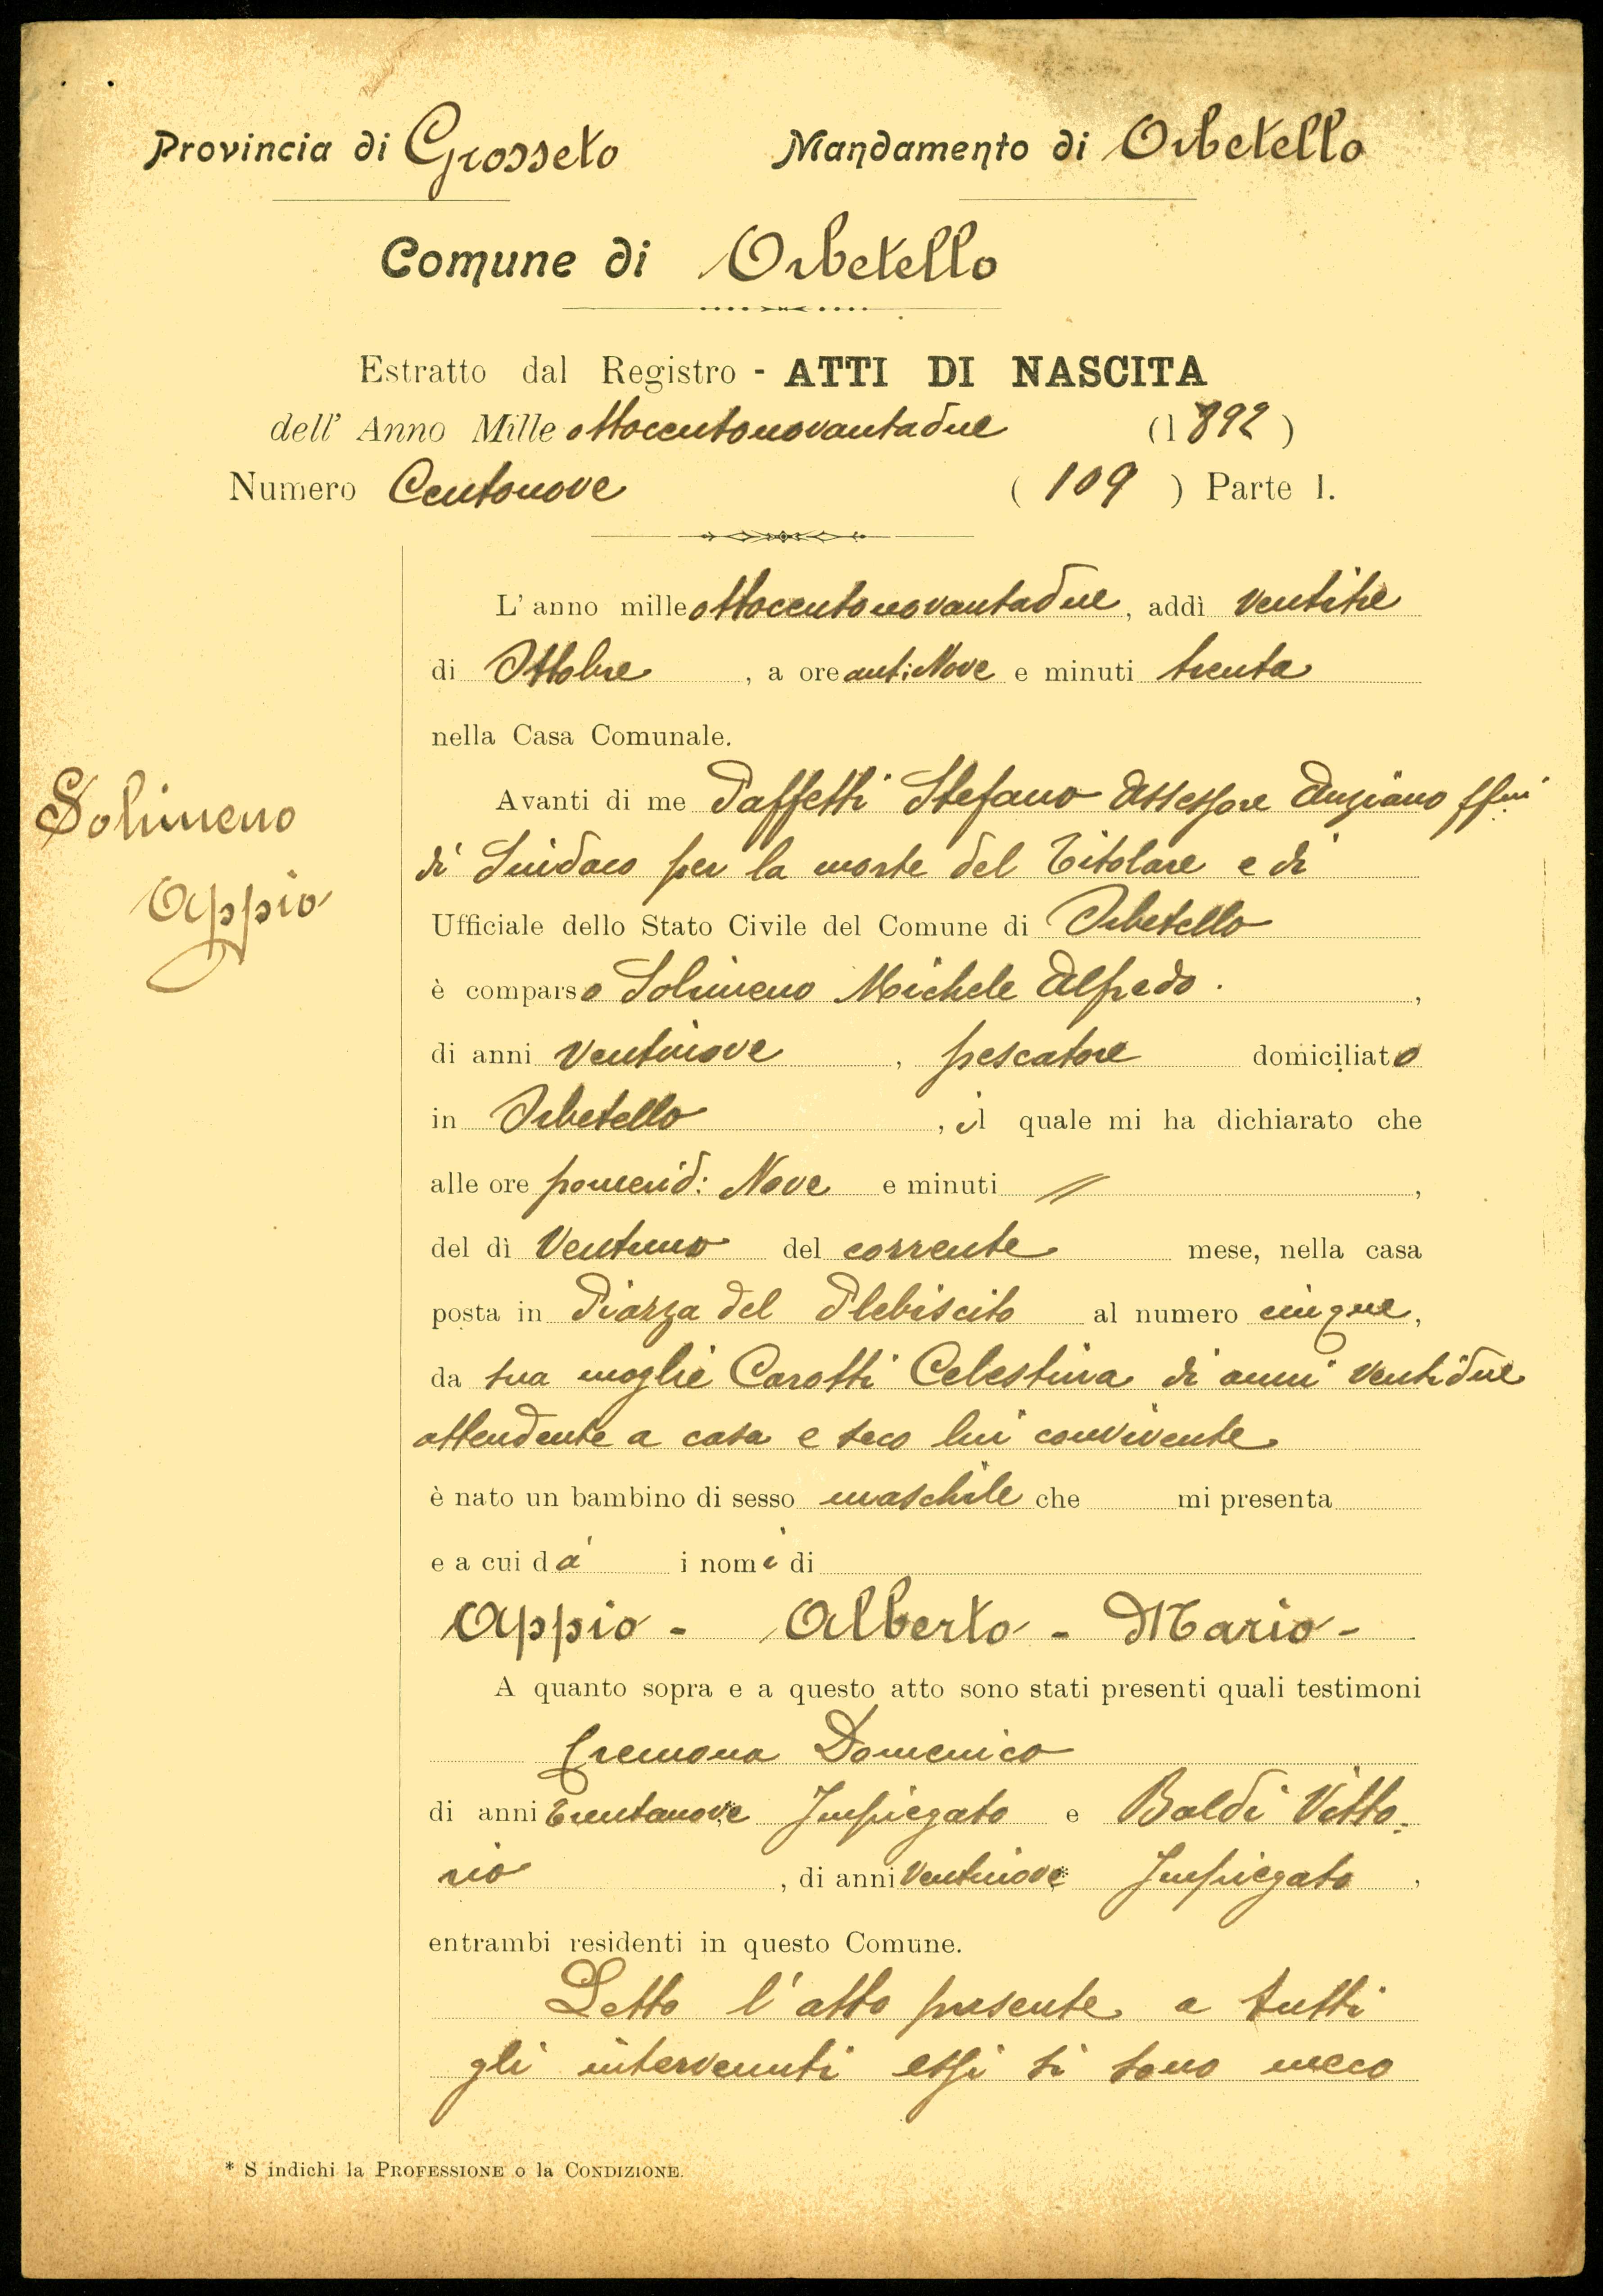 Provincia di Grosseto Mandamento di Orbetello
Comune di Orbetello
Estratto dal Registro - ATTI DI NASCITA
dell' Anno Mille ottocentonovantadue (1892)
Numero Centonove ( 109 ) Parte I.
L' anno mille ottocentonovantadue, addì ventitre
di Ottobre , a ore anti: Nove e minuti trenta
nella Casa Comunale.
Solimeno
Appio
Avanti di me Paffetti Stefano Assessore Anziano ff.ni
di Sindaco per la morte del Titolare e di
Ufficiale dello Stato Civile del Comune di Orbetello
è comparso Solimeno Michele Alfredo.
di anni ventinove , pescatore domiciliato
in Orbetello , il quale mi ha dichiarato che
alle ore pomerid: Nove e minuti // ,
del dì Ventuno del corrente mese, nella casa
posta in Piazza del Plebiscito al numero cinque,
da sua moglie Carotti Celestina di anni ventidue
attendente a casa e seco lui convivente
è nato un bambino di sesso maschile che mi presenta
e a cui dà i nomi di
Appio - Alberto - Mario -
A quanto sopra e a questo atto sono stati presenti quali testimoni
Cremona Domenico
di anni trentanove Impiegato e Baldi Vitto-
rio , di anni ventinove Impiegato ,
entrambi residenti in questo Comune.
Letto l'atto presente a tutti
gli intervenuti essi si sono meco
* S indichi la PROFESSIONE o la CONDIZIONE.